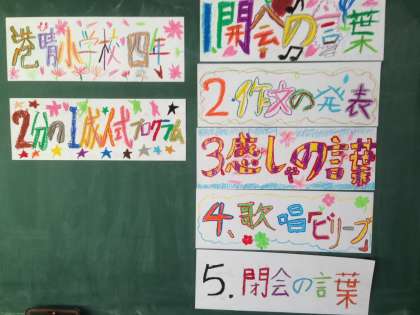 港晴小学校四年
2分の1成人式プログラム
1開会の言葉
2.作文の発表
3感しゃの言葉
4、歌唱「ビリーブ」
5.閉会の言葉